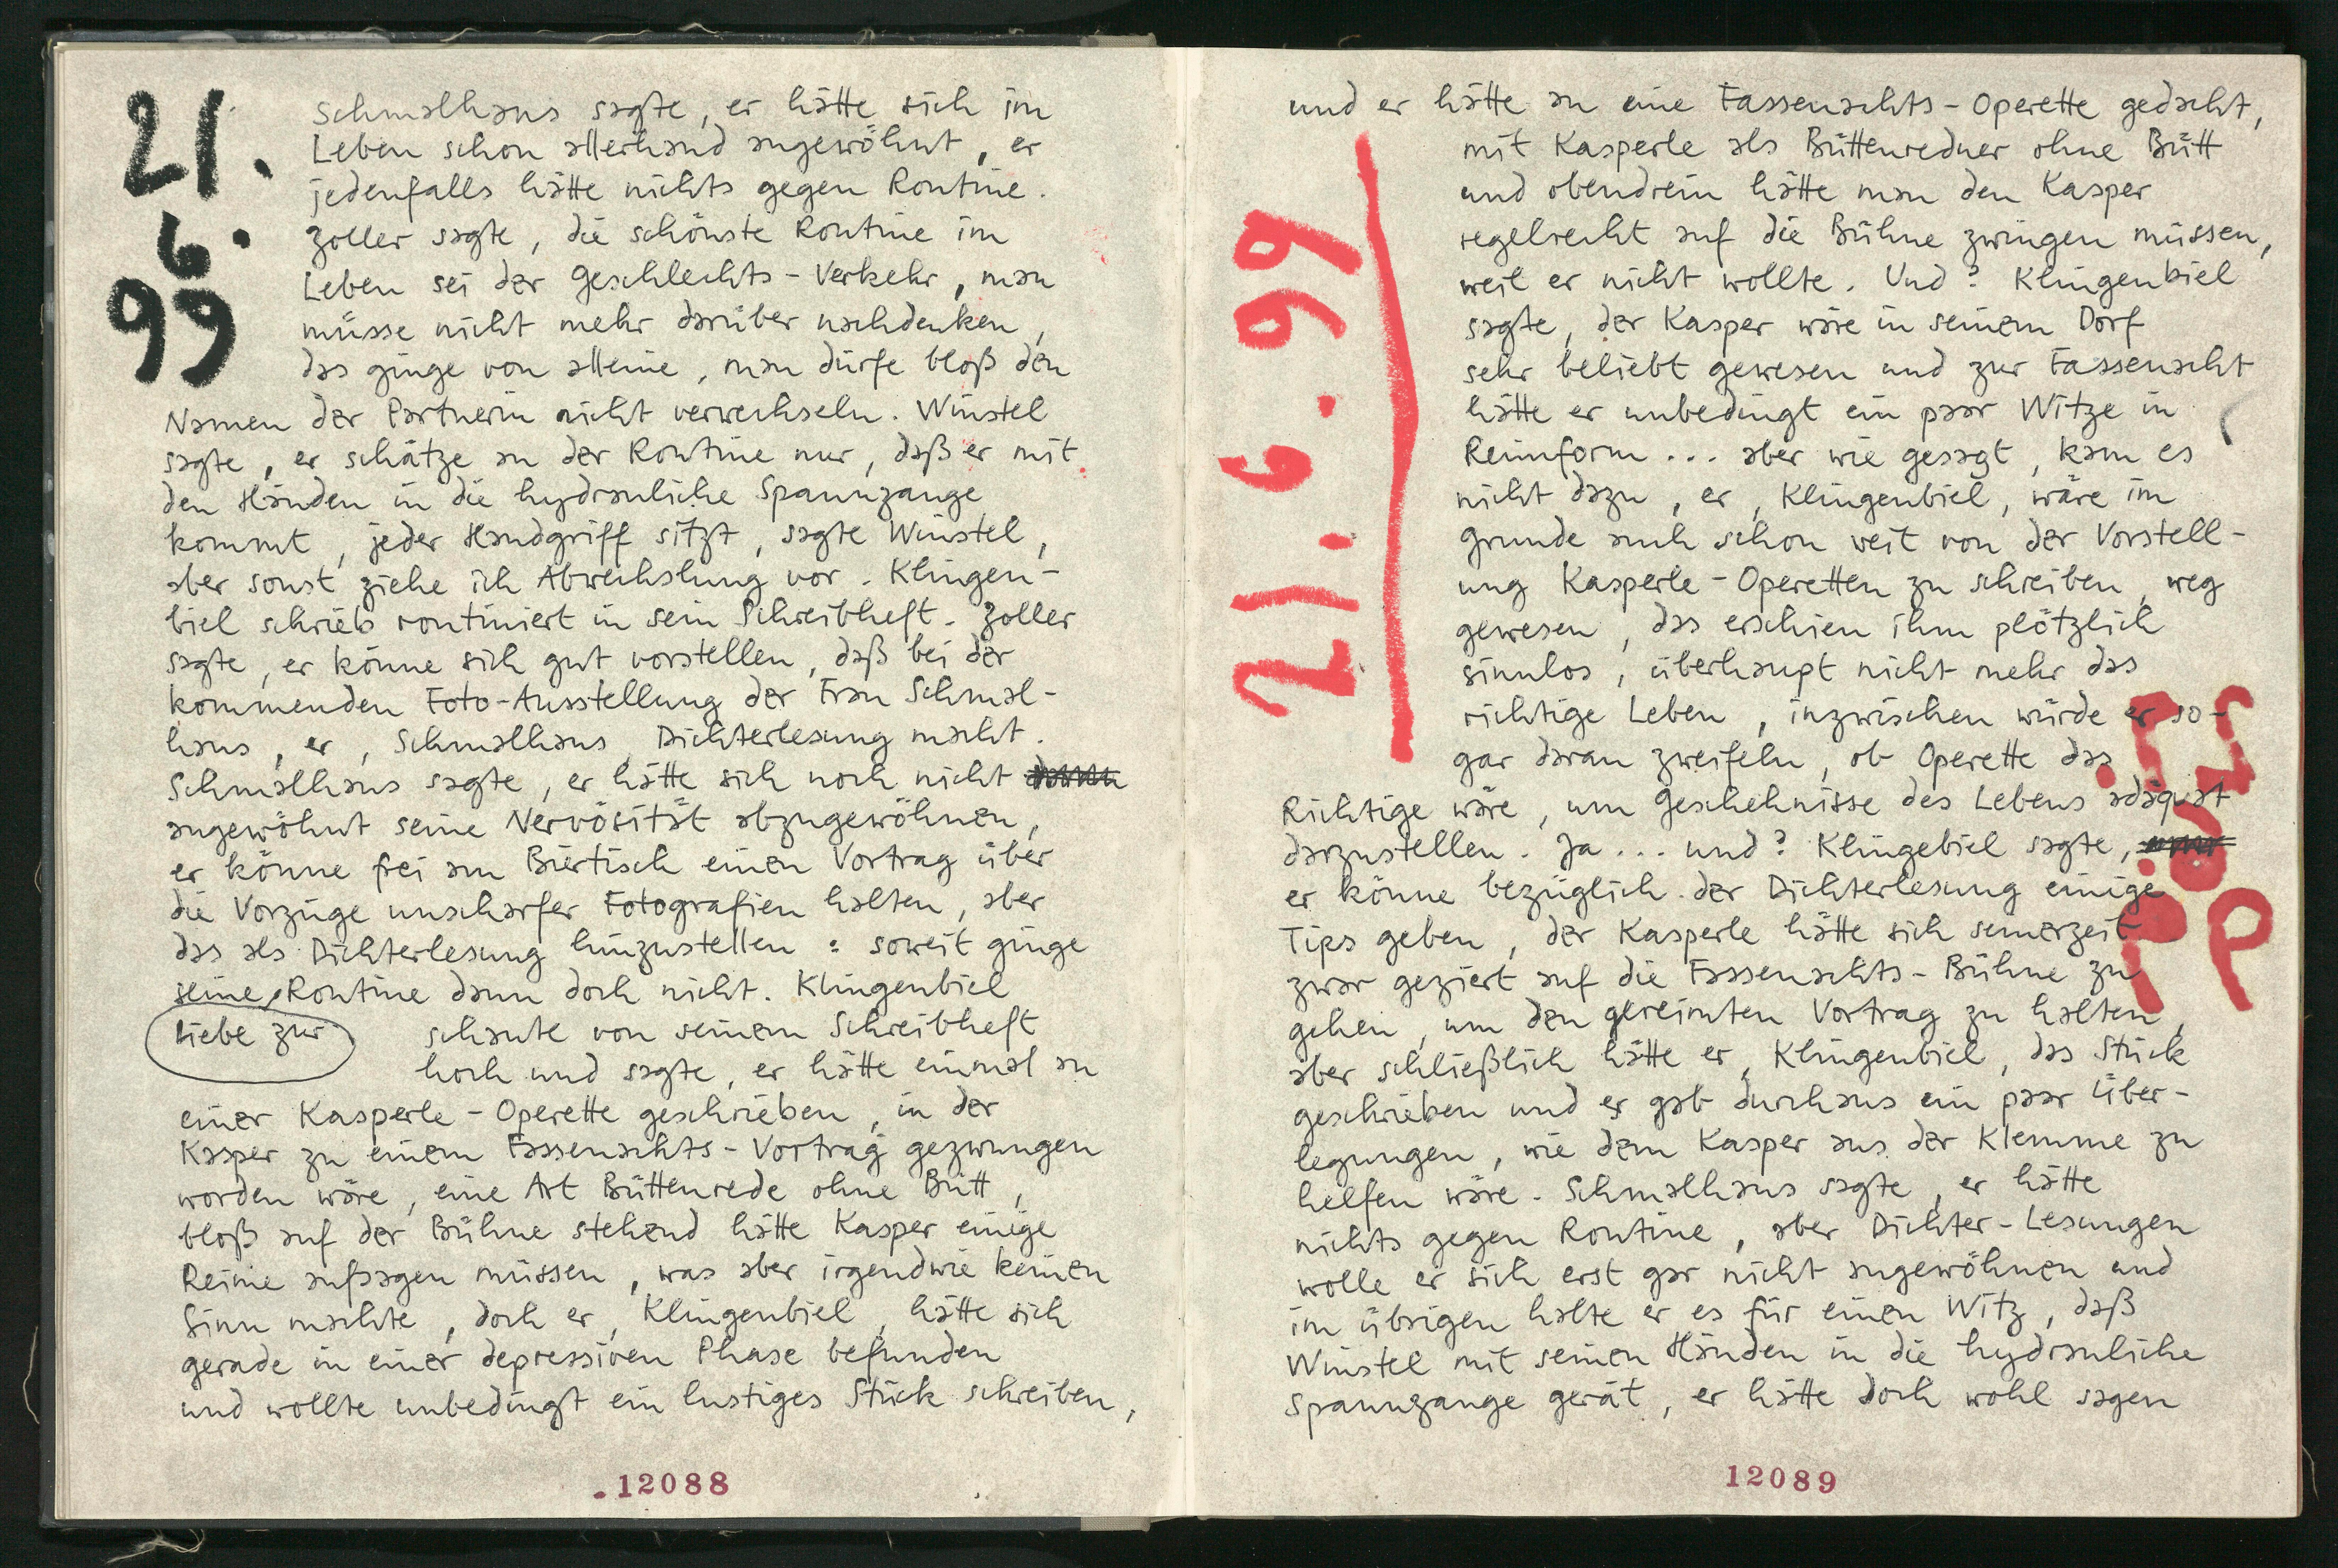 21.
6.
99
Schmalhaus sagte, er hätte sich im
Leben schon allerhand angewöhnt, er
jedenfalls hätte nichts gegen Routine.
Zoller sagte, die schönste Routine im
Leben sei der Geschlechts-Verkehr, man
müsse nicht mehr darüber nachdenken,
das ginge von alleine, man dürfe bloß den
Namen der Partnerin nicht verwechseln. Winstel
sagte, er schätze an der Routine nur, daß er mit
den Händen in die hydrauliche Spannzange
kommt, jeder Handgriff sitzt, sagte Winstel,
aber sonst ziehe ich Abwechslung vor. Klingen-
biel schrieb routiniert in sein Schreibheft. Zoller
sagte, er könne sich gut vorstellen, daß bei der
kommenden Foto-Ausstellung der Frau Schmal-
haus, er, Schmalhaus, Dichterlesung macht.
Schmalhaus sagte, er hätte sich noch nicht
angewöhnt seine Nervösität abzugewöhnen,
er könne frei am Biertisch einen Vortrag über
die Vorzüge unscharfer Fotografien halten, aber
das als Dichterlesung hinzustellen: soweit ginge
seine Routine dann doch nicht. Klingenbiel
Liebe zur
schaute von seinem Schreibheft
hoch und sagte, er hätte einmal an
einer Kasperle-Operette geschrieben, in der
Kasper zu einem Fassenachts-Vortrag gezwungen
worden wäre, eine Art Büttenrede ohne Bütt,
bloß auf der Bühne stehend hätte Kasper einige
Reime aufsagen müssen, was aber irgendwie keinen
Sinn machte, doch er, Klingenbiel, hätte sich
gerade in einer depressiven Phase befunden
und wollte unbedingt ein lustiges Stück schreiben,
12088
und er hätte an eine Fassenachts-Operette gedacht,
21.6.99
mit Kasperle als Büttenredner ohne Bütt
und obendrein hätte man den Kasper
regelrecht auf die Bühne zwingen müssen,
weil er nicht wollte. Und? Klingenbiel
sagte, der Kasper wäre in seinem Dorf
sehr beliebt gewesen und zur Fassenacht
hätte er unbedingt ein paar Witze in
Reimform... aber wie gesagt, kam es
nicht dazu, er, Klingenbiel, wäre im
Grunde auch schon weit von der Vorstell-
ung Kasperle-Operetten zu schreiben, weg
gewesen, das erschien ihm plötzlich
sinnlos, überhaupt nicht mehr das
richtige Leben, inzwischen würde er so-
gar daran zweifeln, ob Operette das
Richtige wäre, um Geschehnisse des Lebens adäquat
darzustellen. Ja... und? Klingebiel sagte,
er könne bezüglich der Dichterlesung einige
Tips geben, der Kasperle hätte sich seinerzeit
zwar geziert auf die Fassenachts-Bühne zu
gehen, um den gereimten Vortrag zu halten,
aber schließlich hätte er, Klingenbiel, das Stück
geschrieben und es gab durchaus ein paar Über-
legungen, wie dem Kasper aus der Klemme zu
helfen wäre. Schmalhaus sagte, er hätte
nichts gegen Routine, aber Dichter-Lesungen
wolle er sich erst gar nicht angewöhnen und
im übrigen halte er es für einen Witz, daß
Winstel mit seinen Händen in die hydrauliche
Spannzange gerät, er hätte doch wohl sagen
12089